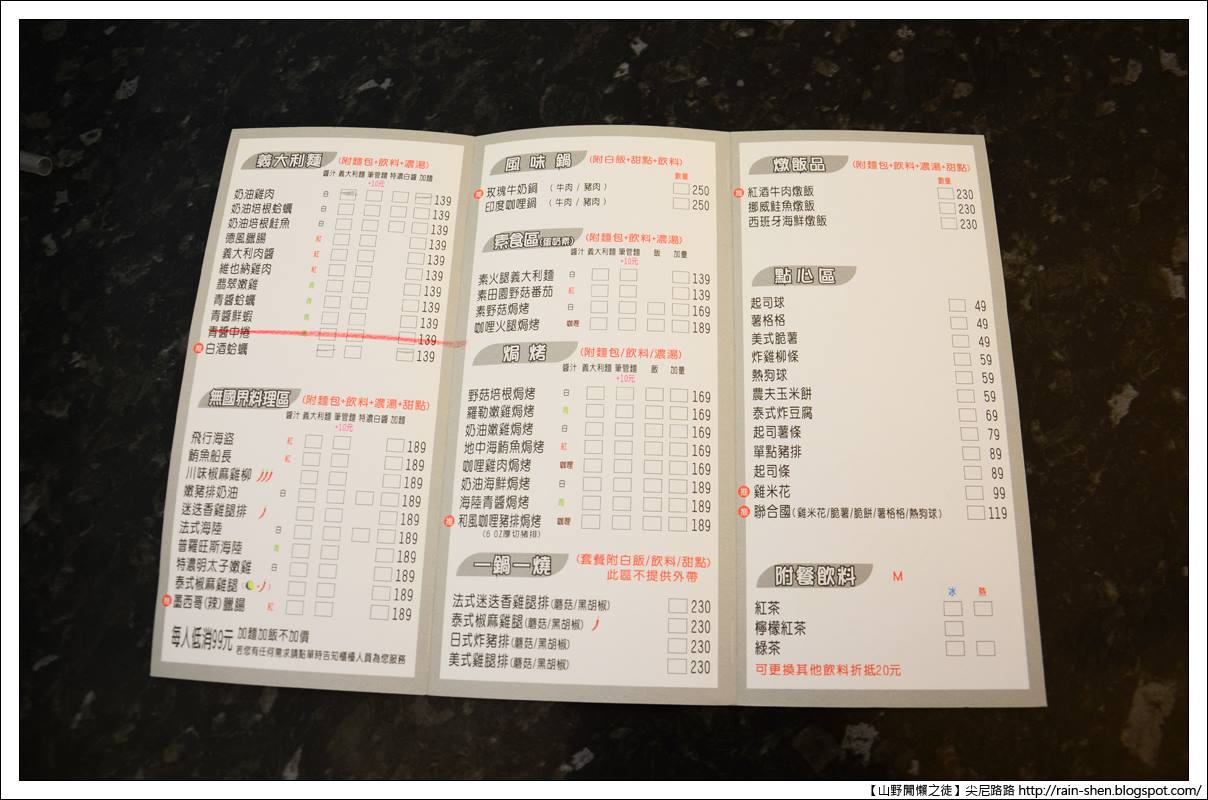 義大利麵 (附麵包+飲料+濃湯)
醬汁 義大利麵 筆管麵 特濃白醬 加麵
+10元
奶油雞肉 白 139
奶油培根蛤蠣 白 139
奶油培根鮭魚 白 139
德風臘腸 紅 139
義大利肉醬 紅 139
維也納雞肉 紅 139
翡翠嫩雞 青 139
青醬蛤蠣 青 139
青醬鮮蝦 青 139
青醬中捲 青 139
推 白酒蛤蠣 139
無國界料理區 (附麵包+飲料+濃湯+甜點)
醬汁 義大利麵 筆管麵 特濃白醬 加麵
+10元
飛行海盜 紅 189
鮪魚船長 紅 189
川味椒麻雞柳 189
嫩豬排奶油 白 189
迷迭香雞腿排 189
法式海陸 白 189
普羅旺斯海陸 青 189
特濃明太子嫩雞 白 189
泰式椒麻雞腿 189
推 墨西哥(辣)臘腸 紅 189
每人低消99元 加麵加飯不加價
若您有任何需求請點單時告知櫃檯人員為您服務
風味鍋 (附白飯+甜點+飲料)
數量
推 玫瑰牛奶鍋 (牛肉/豬肉) 250
印度咖哩鍋 (牛肉/豬肉) 250
素食區(蛋奶素) (附麵包+飲料+濃湯)
醬汁 義大利麵 筆管麵 飯 加量
+10元
素火腿義大利麵 白 139
素田園野菇番茄 紅 139
素野菇焗烤 白 169
咖哩火腿焗烤 咖哩 189
焗烤 (附麵包/飲料/濃湯)
醬汁 義大利麵 筆管麵 飯 加量
+10元
野菇培根焗烤 白 169
羅勒嫩雞焗烤 青 169
奶油嫩雞焗烤 白 169
地中海鮪魚焗烤 紅 169
咖哩雞肉焗烤 咖哩 169
奶油海鮮焗烤 白 189
海陸青醬焗烤 青 189
推 和風咖哩豬排焗烤 咖哩 189
(6 OZ厚切豬排)
一鍋一燒 (套餐附白飯/飲料/甜點)
此區不提供外帶
法式迷迭香雞腿排(蘑菇/黑胡椒) 230
泰式椒麻雞腿(蘑菇/黑胡椒) 230
日式炸豬排(蘑菇/黑胡椒) 230
美式雞腿排(蘑菇/黑胡椒) 230
燉飯品 (附麵包+飲料+濃湯+甜點)
數量
推 紅酒牛肉燉飯 230
挪威鮭魚燉飯 230
西班牙海鮮燉飯 230
點心區
起司球 49
薯格格 49
美式脆薯 49
炸雞柳條 59
熱狗球 59
農夫玉米餅 59
泰式炸豆腐 69
起司薯條 79
單點豬排 89
起司條 89
推 雞米花 99
推 聯合國(雞米花/脆薯/脆餅/薯格格/熱狗球) 119
附餐飲料 M
冰 熱
紅茶
檸檬紅茶
綠茶
可更換其他飲料折抵20元
【山野閒懶之徒】尖尼路路 http://rain-shen.blogspot.com/